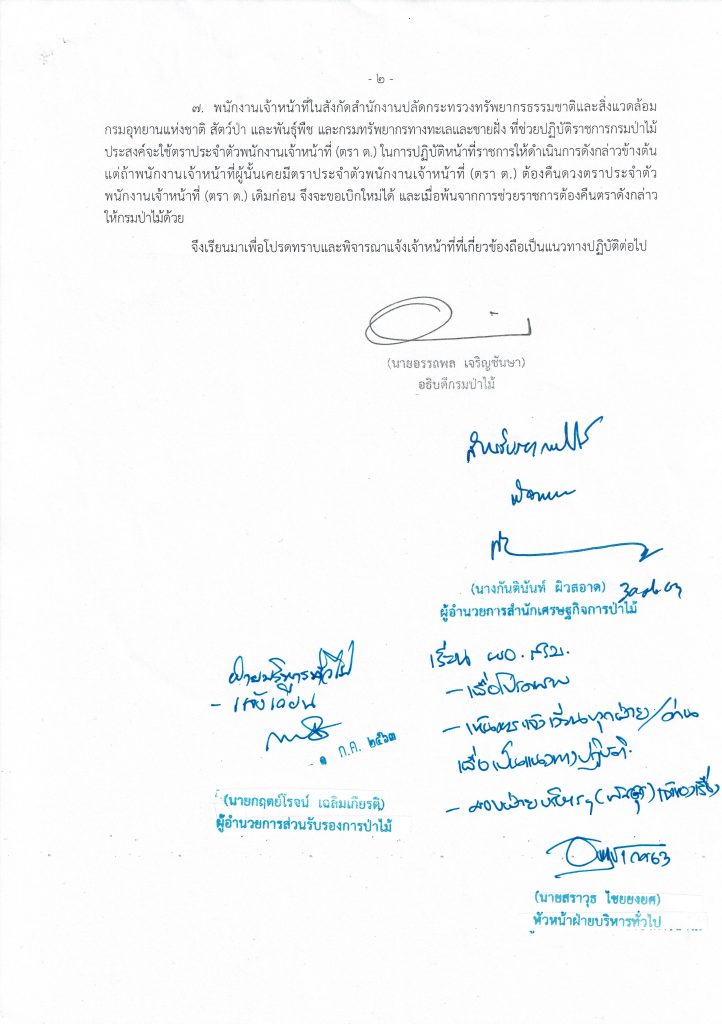 - ๒ -
๗. พนักงานเจ้าหน้าที่ในสังกัดสำนักงานปลัดกระทรวงทรัพยากรธรรมชาติและสิ่งแวดล้อม
กรมอุทยานแห่งชาติ สัตว์ป่า และพันธุ์พืช และกรมทรัพยากรทางทะเลและชายฝั่ง ที่ช่วยปฏิบัติราชการกรมป่าไม้
ประสงค์จะใช้ตราประจำตัวพนักงานเจ้าหน้าที่ (ตรา ต.) ในการปฏิบัติหน้าที่ราชการให้ดำเนินการดังกล่าวข้างต้น
แต่ถ้าพนักงานเจ้าหน้าที่ผู้นั้นเคยมีตราประจำตัวพนักงานเจ้าหน้าที่ (ตรา ต.) ต้องคืนดวงตราประจำตัว
พนักงานเจ้าหน้าที่ (ตรา ต.) เดิมก่อน จึงจะขอเบิกใหม่ได้ และเมื่อพ้นจากการช่วยราชการต้องคืนตราดังกล่าว
ให้กรมป่าไม้ด้วย
จึงเรียนมาเพื่อโปรดทราบและพิจารณาแจ้งเจ้าหน้าที่ที่เกี่ยวข้องถือเป็นแนวทางปฏิบัติต่อไป
(นายอรรถพล เจริญชันษา)
อธิบดีกรมป่าไม้
(นางกันตินันท์ ผิวสอาด)
ผู้อำนวยการสำนักเศรษฐกิจการป่าไม้
เรียน ผอ. สรบ.
- เพื่อโปรดทราบ
- เห็นควรแจ้งเวียนทุกฝ่าย/ส่วน
เพื่อเป็นแนวทางปฏิบัติ
ฝ่ายบริหารทั่วไป
- แจ้งเวียน
๑ ก.ค. ๒๕๖๓
(นายกฤตย์โรจน์ เฉลิมเกียรติ)
ผู้อำนวยการส่วนรับรองการป่าไม้
(นายสราวุธ ไชยยงยศ)
หัวหน้าฝ่ายบริหารทั่วไป